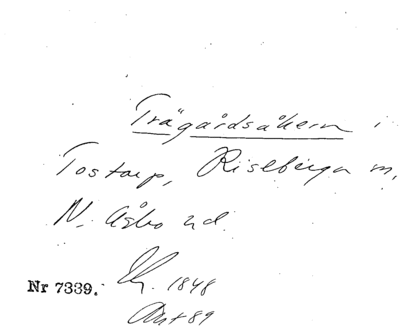 Trägårdsåkern i
Tostarp, Riseberga m,
N. Åsbo hd.
Nr 7339. 1848
Avst 89